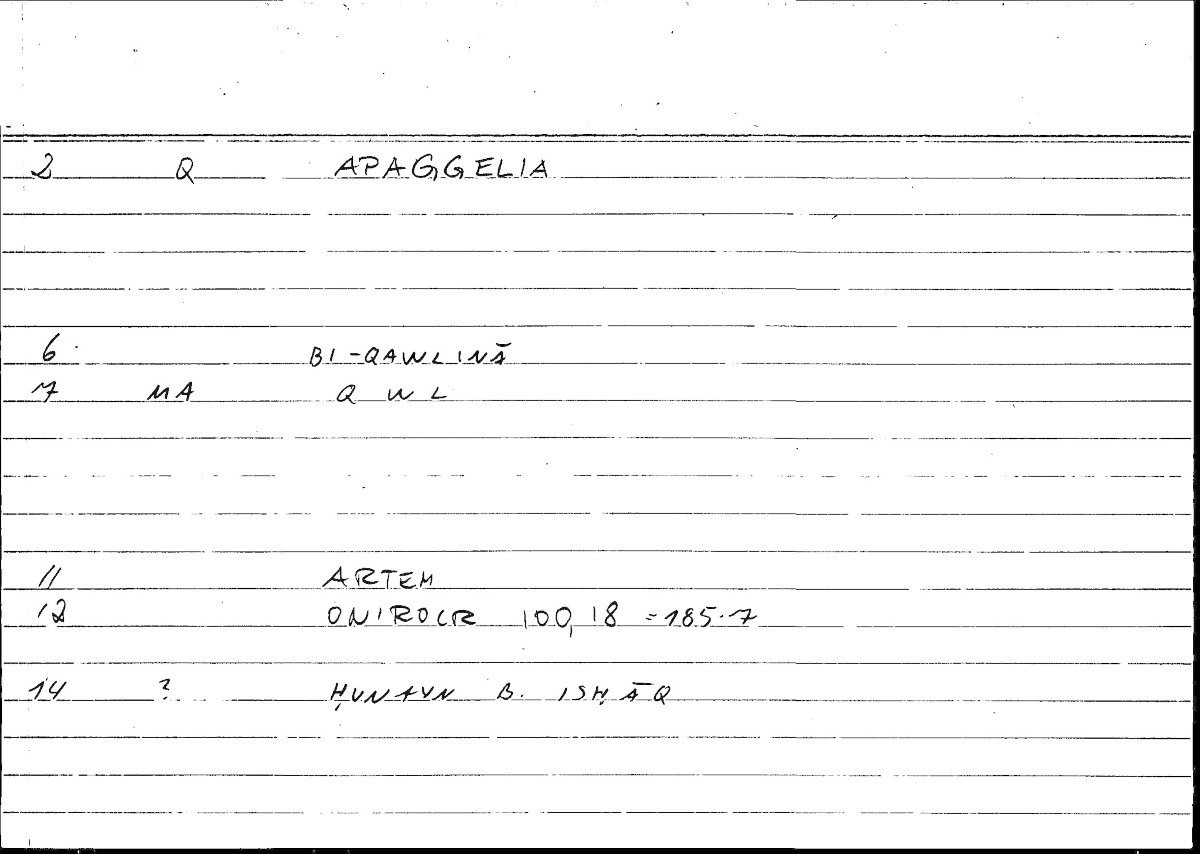 2 Q APAGGELIA
6 BI-QAWLINĀ
7 MA Q W L
11 ARTEM
12 ONIROCR 100,18 = 185.7
14 ? ḤUNAYN B. ISḤĀQ